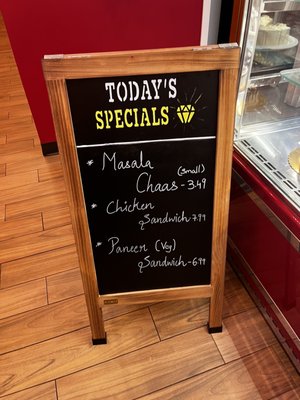 TODAY'S
SPECIALS
* Masala
(small)
Chaas - 3.49
* Chicken
Sandwich 7.99
* Paneer (Veg)
Sandwich - 6.99